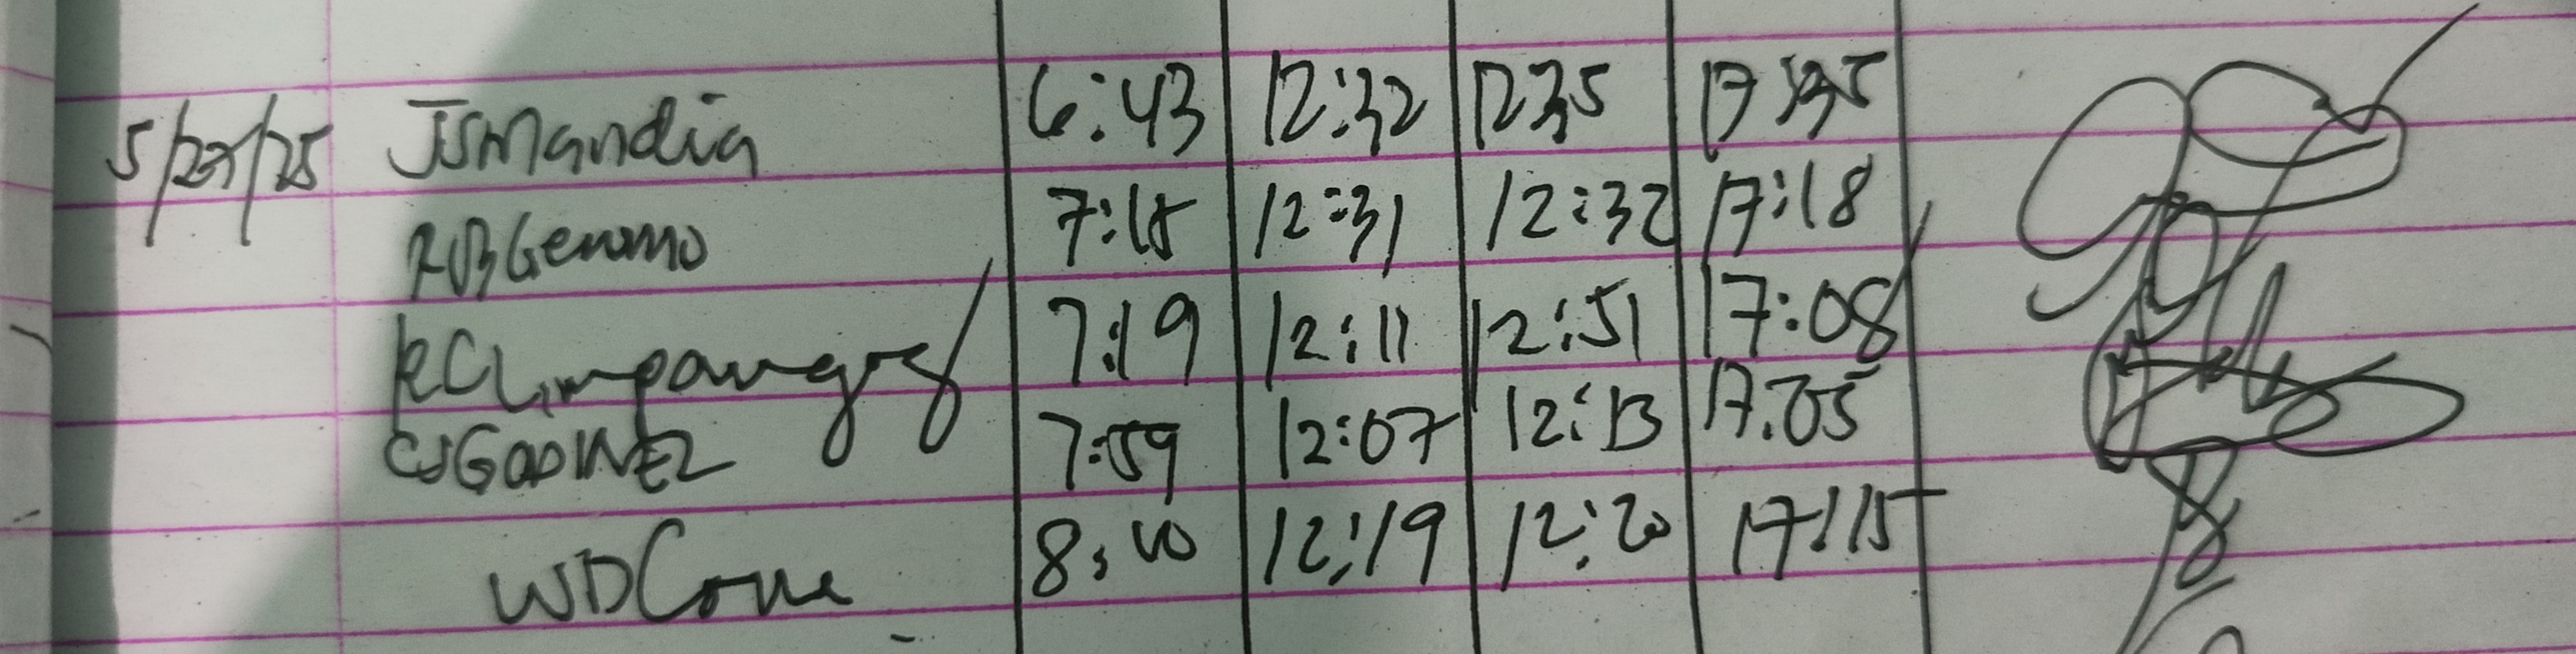 5/27/25 JSMandia 6:43 12:32 1235 17:35
RBGeromo 7:18 12:31 12:32 17:18
RCLimpangog 7:19 12:11 12:51 17:08
CJGODINEZ 7:59 12:07 12:13 17:05
WDCone 8:10 12:19 12:20 17:15